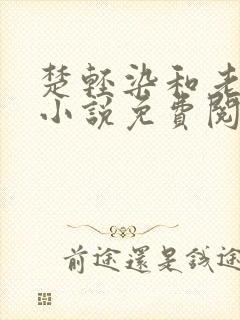 楚輕染和老
小說免費閱
前途還是錢途